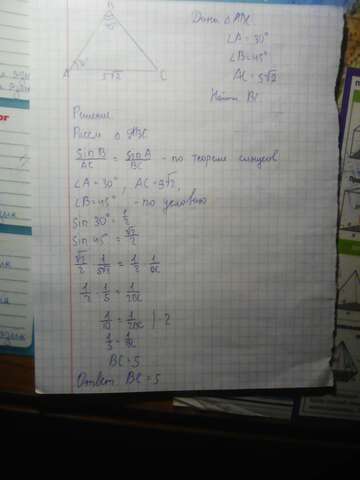 B
45°
30°
A 5√2 C
Дано △ABC
∠A = 30°
∠B = 45°
AC = 5√2
Найти BC
Решение
Рассм △ ABC
sin B / AC = sin A / BC - по теореме синусов
∠A = 30°, AC = 5√2,
∠B = 45° - по условию
sin 30° = 1/2
sin 45° = √2/2
√2/2 · 1/5√2 = 1/2 · 1/BC
1/2 · 1/5 = 1/2BC
1/10 = 1/2BC | · 2
1/5 = 1/BC
BC = 5
Ответ BC = 5